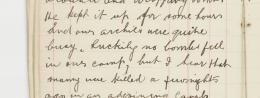 he kept it up for some hours
and our archies were quite
busy. Luckily no bombs fell
in our camp, but I hear that
many were killed a few nights
ago in an adjoining camp